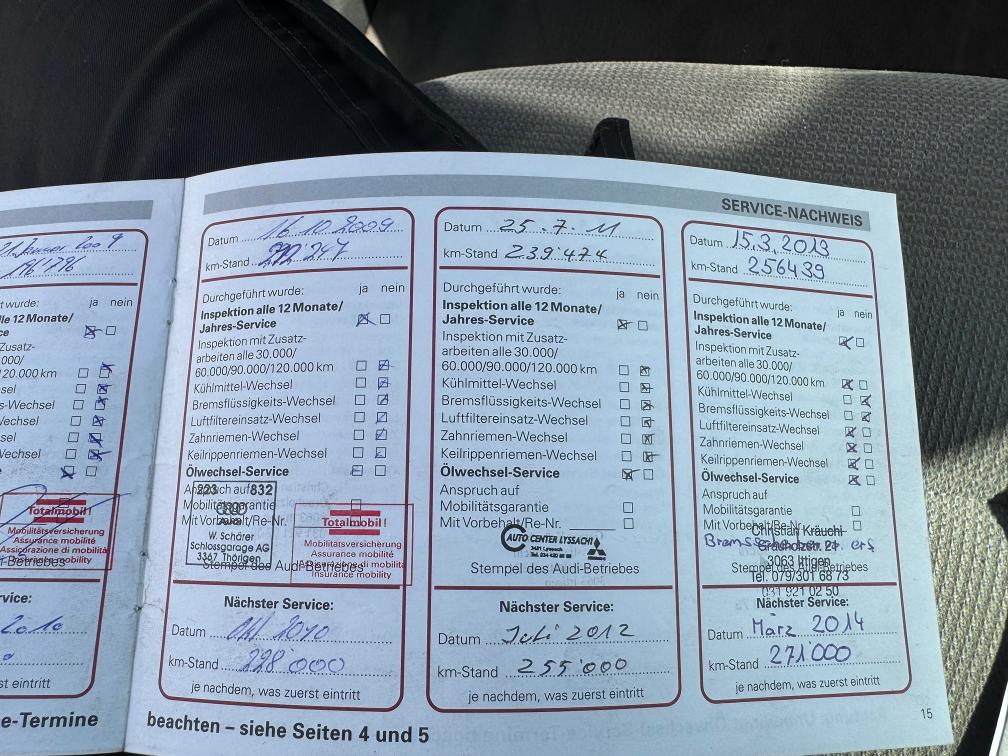 SERVICE-NACHWEIS
21. Januar 2009
196'796
t wurde:
lle 12 Monate/
ce
Zusatz-
000/
120.000 km
sel
s-Wechsel
Wechsel
sel
Wechsel
e
Totalmobil!
Mobilitätsversicherung
Assurance mobilité
Assicurazione di mobilità
insurance mobility
-Betriebes
rvice:
2010
st eintritt
e-Termine
Datum 16 10 2009
km-Stand 212 247
Durchgeführt wurde: ja nein
Inspektion alle 12 Monate/
Jahres-Service
Inspektion mit Zusatz-
arbeiten alle 30.000/
60.000/90.000/120.000 km
Kühlmittel-Wechsel
Bremsflüssigkeits-Wechsel
Luftfiltereinsatz-Wechsel
Zahnriemen-Wechsel
Keilrippenriemen-Wechsel
Ölwechsel-Service
Anspruch auf
Mobilitätsgarantie
Mit Vorbehalt/Re-Nr.
223 832
Audi
W. Schärer
Schlossgarage AG
3367 Thörigen
Totalmobil!
Mobilitätsversicherung
Assurance mobilité
Assicurazione di mobilità
insurance mobility
Stempel des Audi-Betriebes
Nächster Service:
Datum Okt 2010
km-Stand 228'000
je nachdem, was zuerst eintritt
Datum 25. 7. 11
km-Stand 239'474
ja nein
Durchgeführt wurde:
Inspektion alle 12 Monate/
Jahres-Service
Inspektion mit Zusatz-
arbeiten alle 30.000/
60.000/90.000/120.000 km
Kühlmittel-Wechsel
Bremsflüssigkeits-Wechsel
Luftfiltereinsatz-Wechsel
Zahnriemen-Wechsel
Keilrippenriemen-Wechsel
Ölwechsel-Service
Anspruch auf
Mobilitätsgarantie
Mit Vorbehalt/Re-Nr.
AUTO CENTER LYSSACH
3421 Lyssach
Stempel des Audi-Betriebes
Nächster Service:
Datum Juli 2012
km-Stand 255'000
je nachdem, was zuerst eintritt
Datum 15.3.2013
km-Stand 256439
Durchgeführt wurde: ja nein
Inspektion alle 12 Monate/
Jahres-Service
Inspektion mit Zusatz-
arbeiten alle 30.000/
60.000/90.000/120.000 km
Kühlmittel-Wechsel
Bremsflüssigkeits-Wechsel
Luftfiltereinsatz-Wechsel
Zahnriemen-Wechsel
Keilrippenriemen-Wechsel
Ölwechsel-Service
Anspruch auf
Mobilitätsgarantie
Mit Vorbehalt/Re-Nr.
Christian Kräuchi
Grauholzstr. 21
3063 Ittigen
Stempel des Audi-Betriebes
Tel. 079/301 68 73
031 921 02 50
Nächster Service:
Datum März 2014
km-Stand 271'000
je nachdem, was zuerst eintritt
beachten – siehe Seiten 4 und 5
15